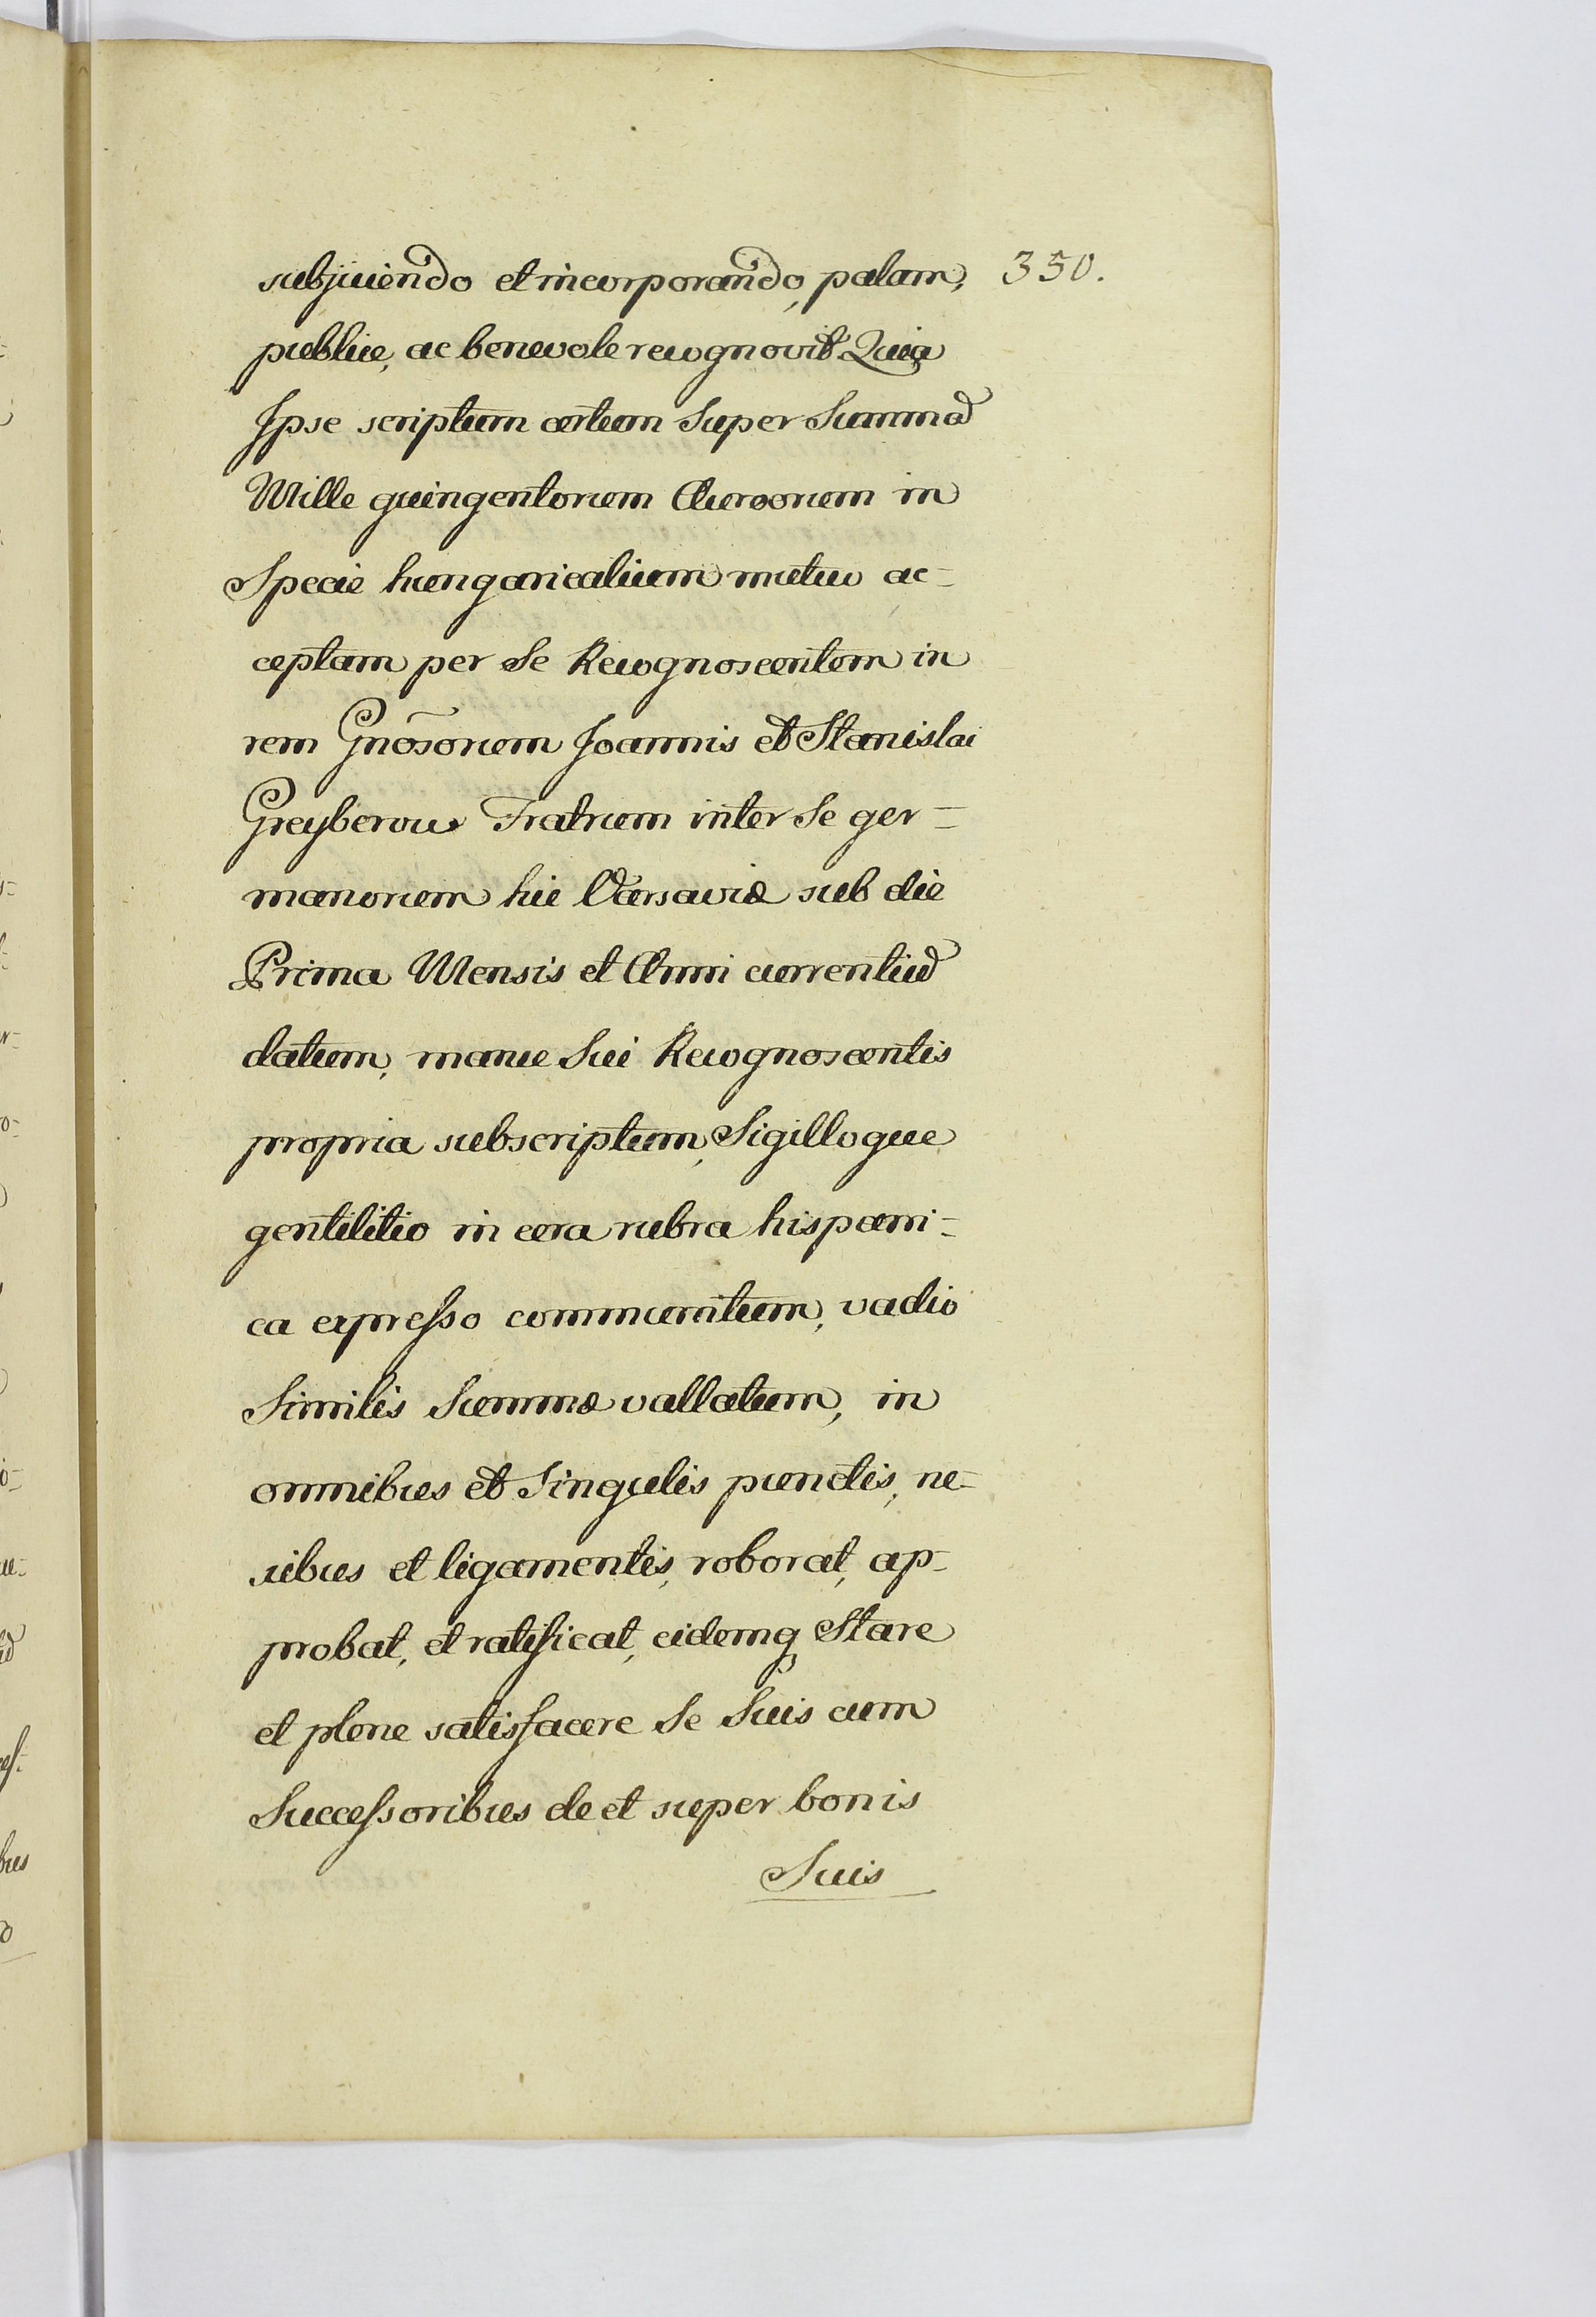 subjiciendo et incorporando, palam, 350.
publice, ac benevole recognovit Quia
Ipse scriptum certum Super Summa
Mille quingentorum Aureorum in
Specie hungaricalium mutuo ac-
ceptam per Se Recognoscentem in
rem Gnosorum Joannis et Stanislai
Fratrum inter Se ger-
manorum hic Varsaviæ sub die
Prima Mensis et Anni currentium
datum, manu Sui Recognoscentis
propria subscriptum, Sigilloque
gentilitio in cera rubra hispani-
ca expresso communitum, vadio
Similis Summæ vallatum, in
omnibus et Singulis punctis, ne-
xibus et ligamentis, roborat, ap-
probat, et ratificat, eidemq Stare
et plene satisfacere Se Suis cum
Successoribus de et super bonis
Suis